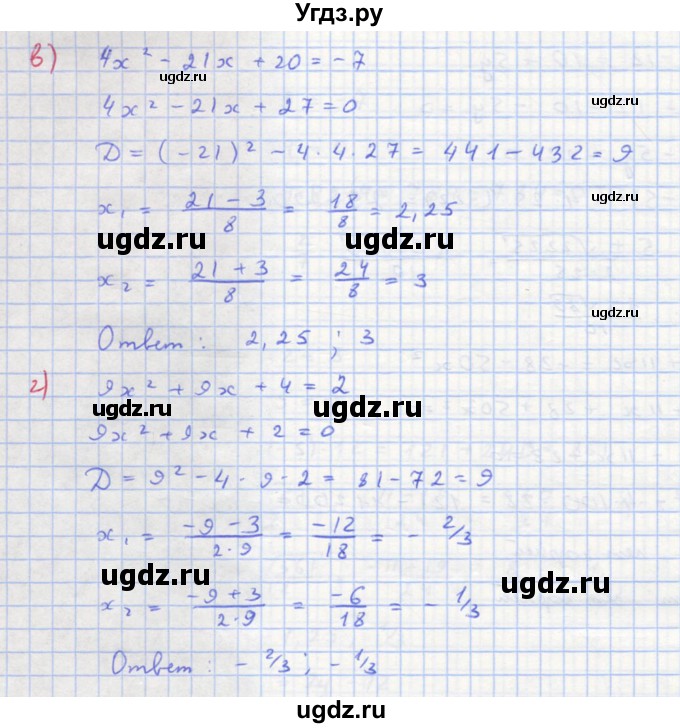 Угдз.ру
в) 4x² - 21x + 20 = -7
ugdz.ru
4x² - 21x + 27 = 0
D = (-21)² - 4·4·27 = 441 - 432 = 9
x₁ = (21 - 3)/8 = 18/8 = 2,25
ugdz.ru ugdz.ru ugdz.ru
x₂ = (21 + 3)/8 = 24/8 = 3
Ответ: 2,25 ; 3
г) 9x² + 9x + 4 = 2
ugdz.ru ugdz.ru
9x² + 9x + 2 = 0
D = 9² - 4·9·2 = 81 - 72 = 9
x₁ = (-9 - 3)/(2·9) = -12/18 = - 2/3
ugdz.ru ugdz.ru
x₂ = (-9 + 3)/(2·9) = -6/18 = - 1/3
Ответ: - 2/3 ; - 1/3
ugdz.ru ugdz.ru